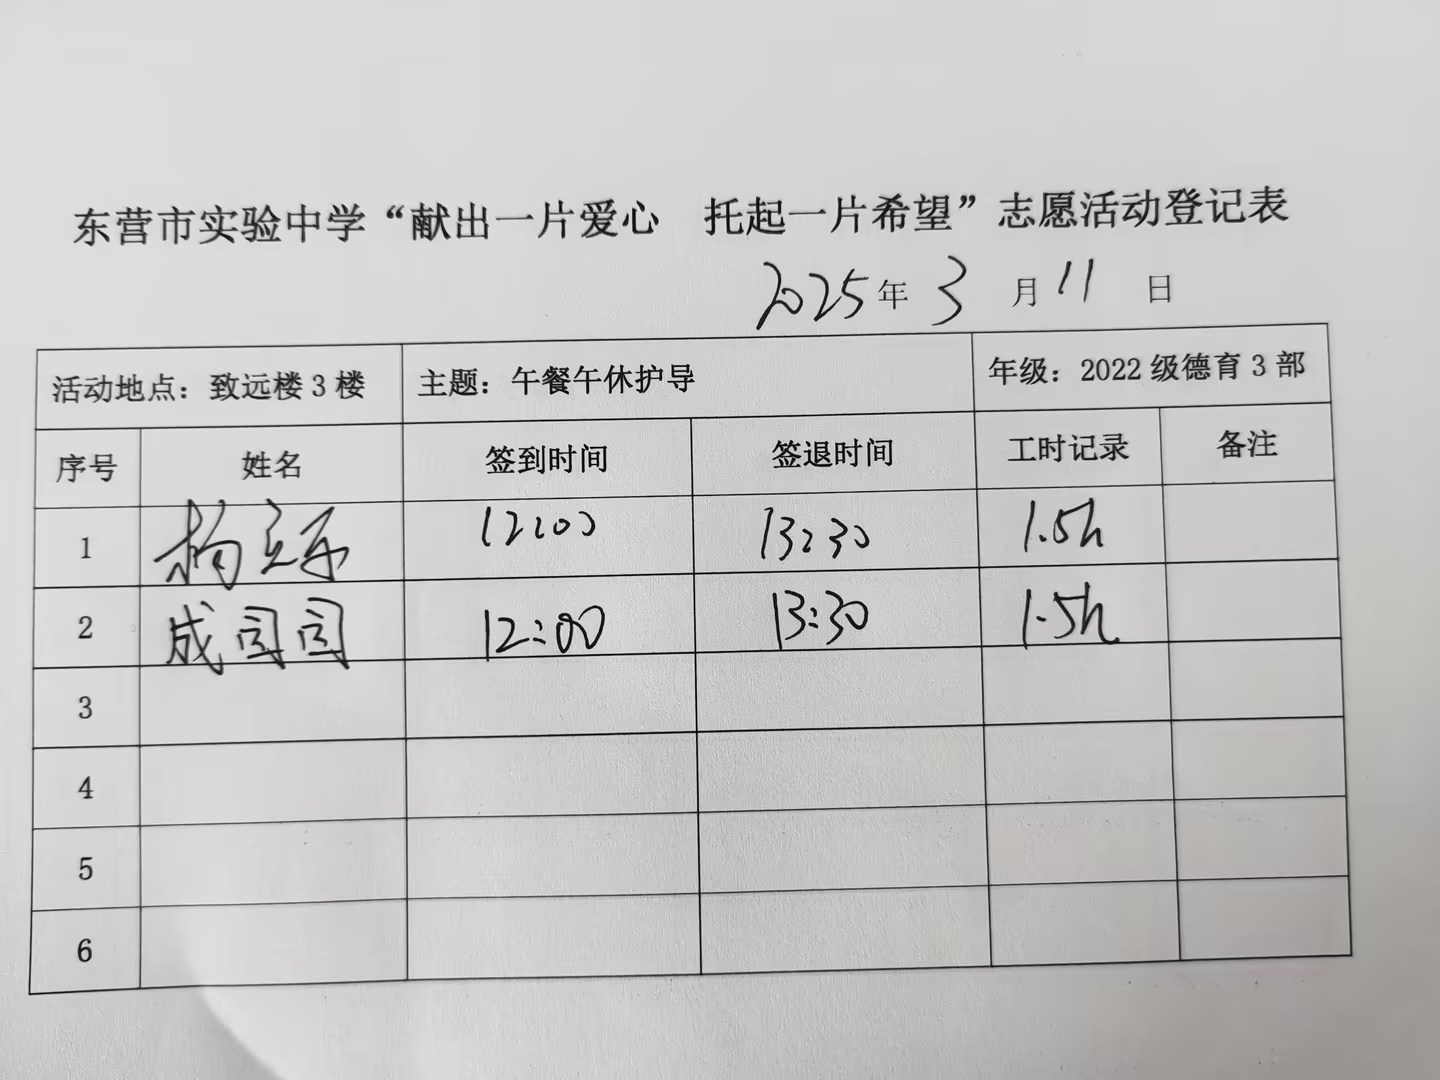 东营市实验中学“献出一片爱心 托起一片希望”志愿活动登记表
2025年3月11日
活动地点：致远楼3楼 主题：午餐午休护导 年级：2022级德育3部
序号 姓名 签到时间 签退时间 工时记录 备注
1 杨 12:00 13:30 1.5h
2 成闫闫 12:00 13:30 1.5h
3
4
5
6